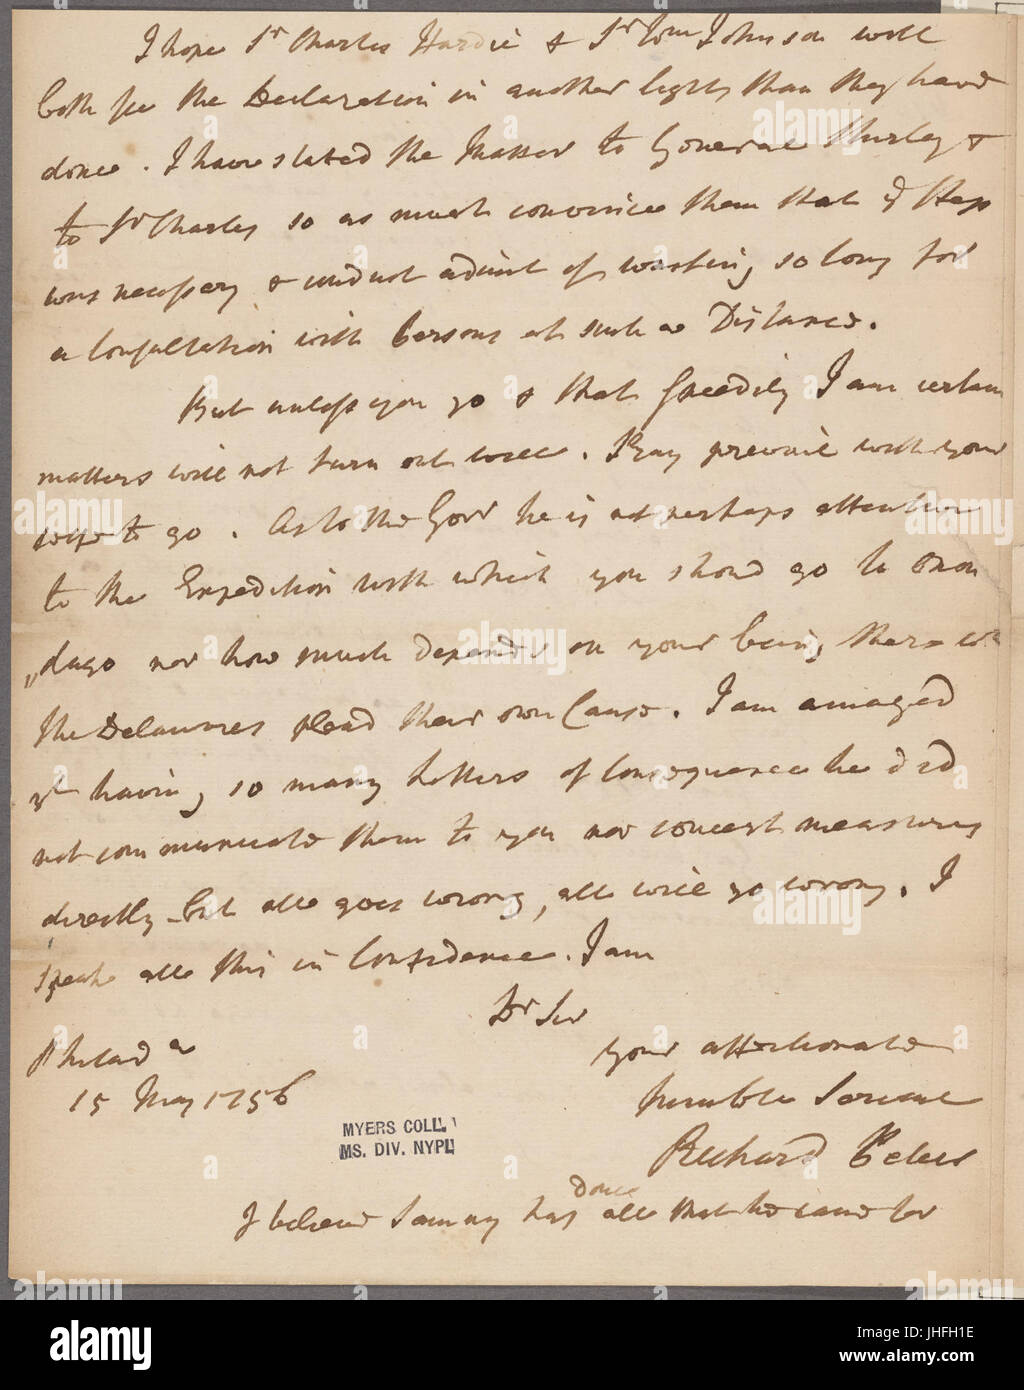 I hope Sr Charles Hardie & Sr Wm Johnson will
both see the Declaration in another light than they have
done. I have stated the Matter to General Shirley &
to Sr Charles so as must convince them that ye Step
was necessary & could not admit of waiting so long for
a Consultation with Persons at such a Distance.
But unless you go & that speedily I am certain
matters will not turn out well. Pray prevail with your
self to go. As to the Govr he is not perhaps attentive
to the Expedition with which you shoud go to Onon
"dago nor how much depends on your being there wn
the Delawares plead their own Cause. I am amazed
yt having so many Letters of Consequence he did
not communicate them to you nor concert measures
directly but all goes wrong, all will go wrong. I
speak all this in Confidence. I am
Dr Sir
your affectionate
humble Servant
Richard Peters
Philada
15 May 1756
MYERS COLL.
MS. DIV. NYPL
done
I believe Sammy has all that he came for
alamy
alamy stock photo
JHFH1E
www.alamy.com